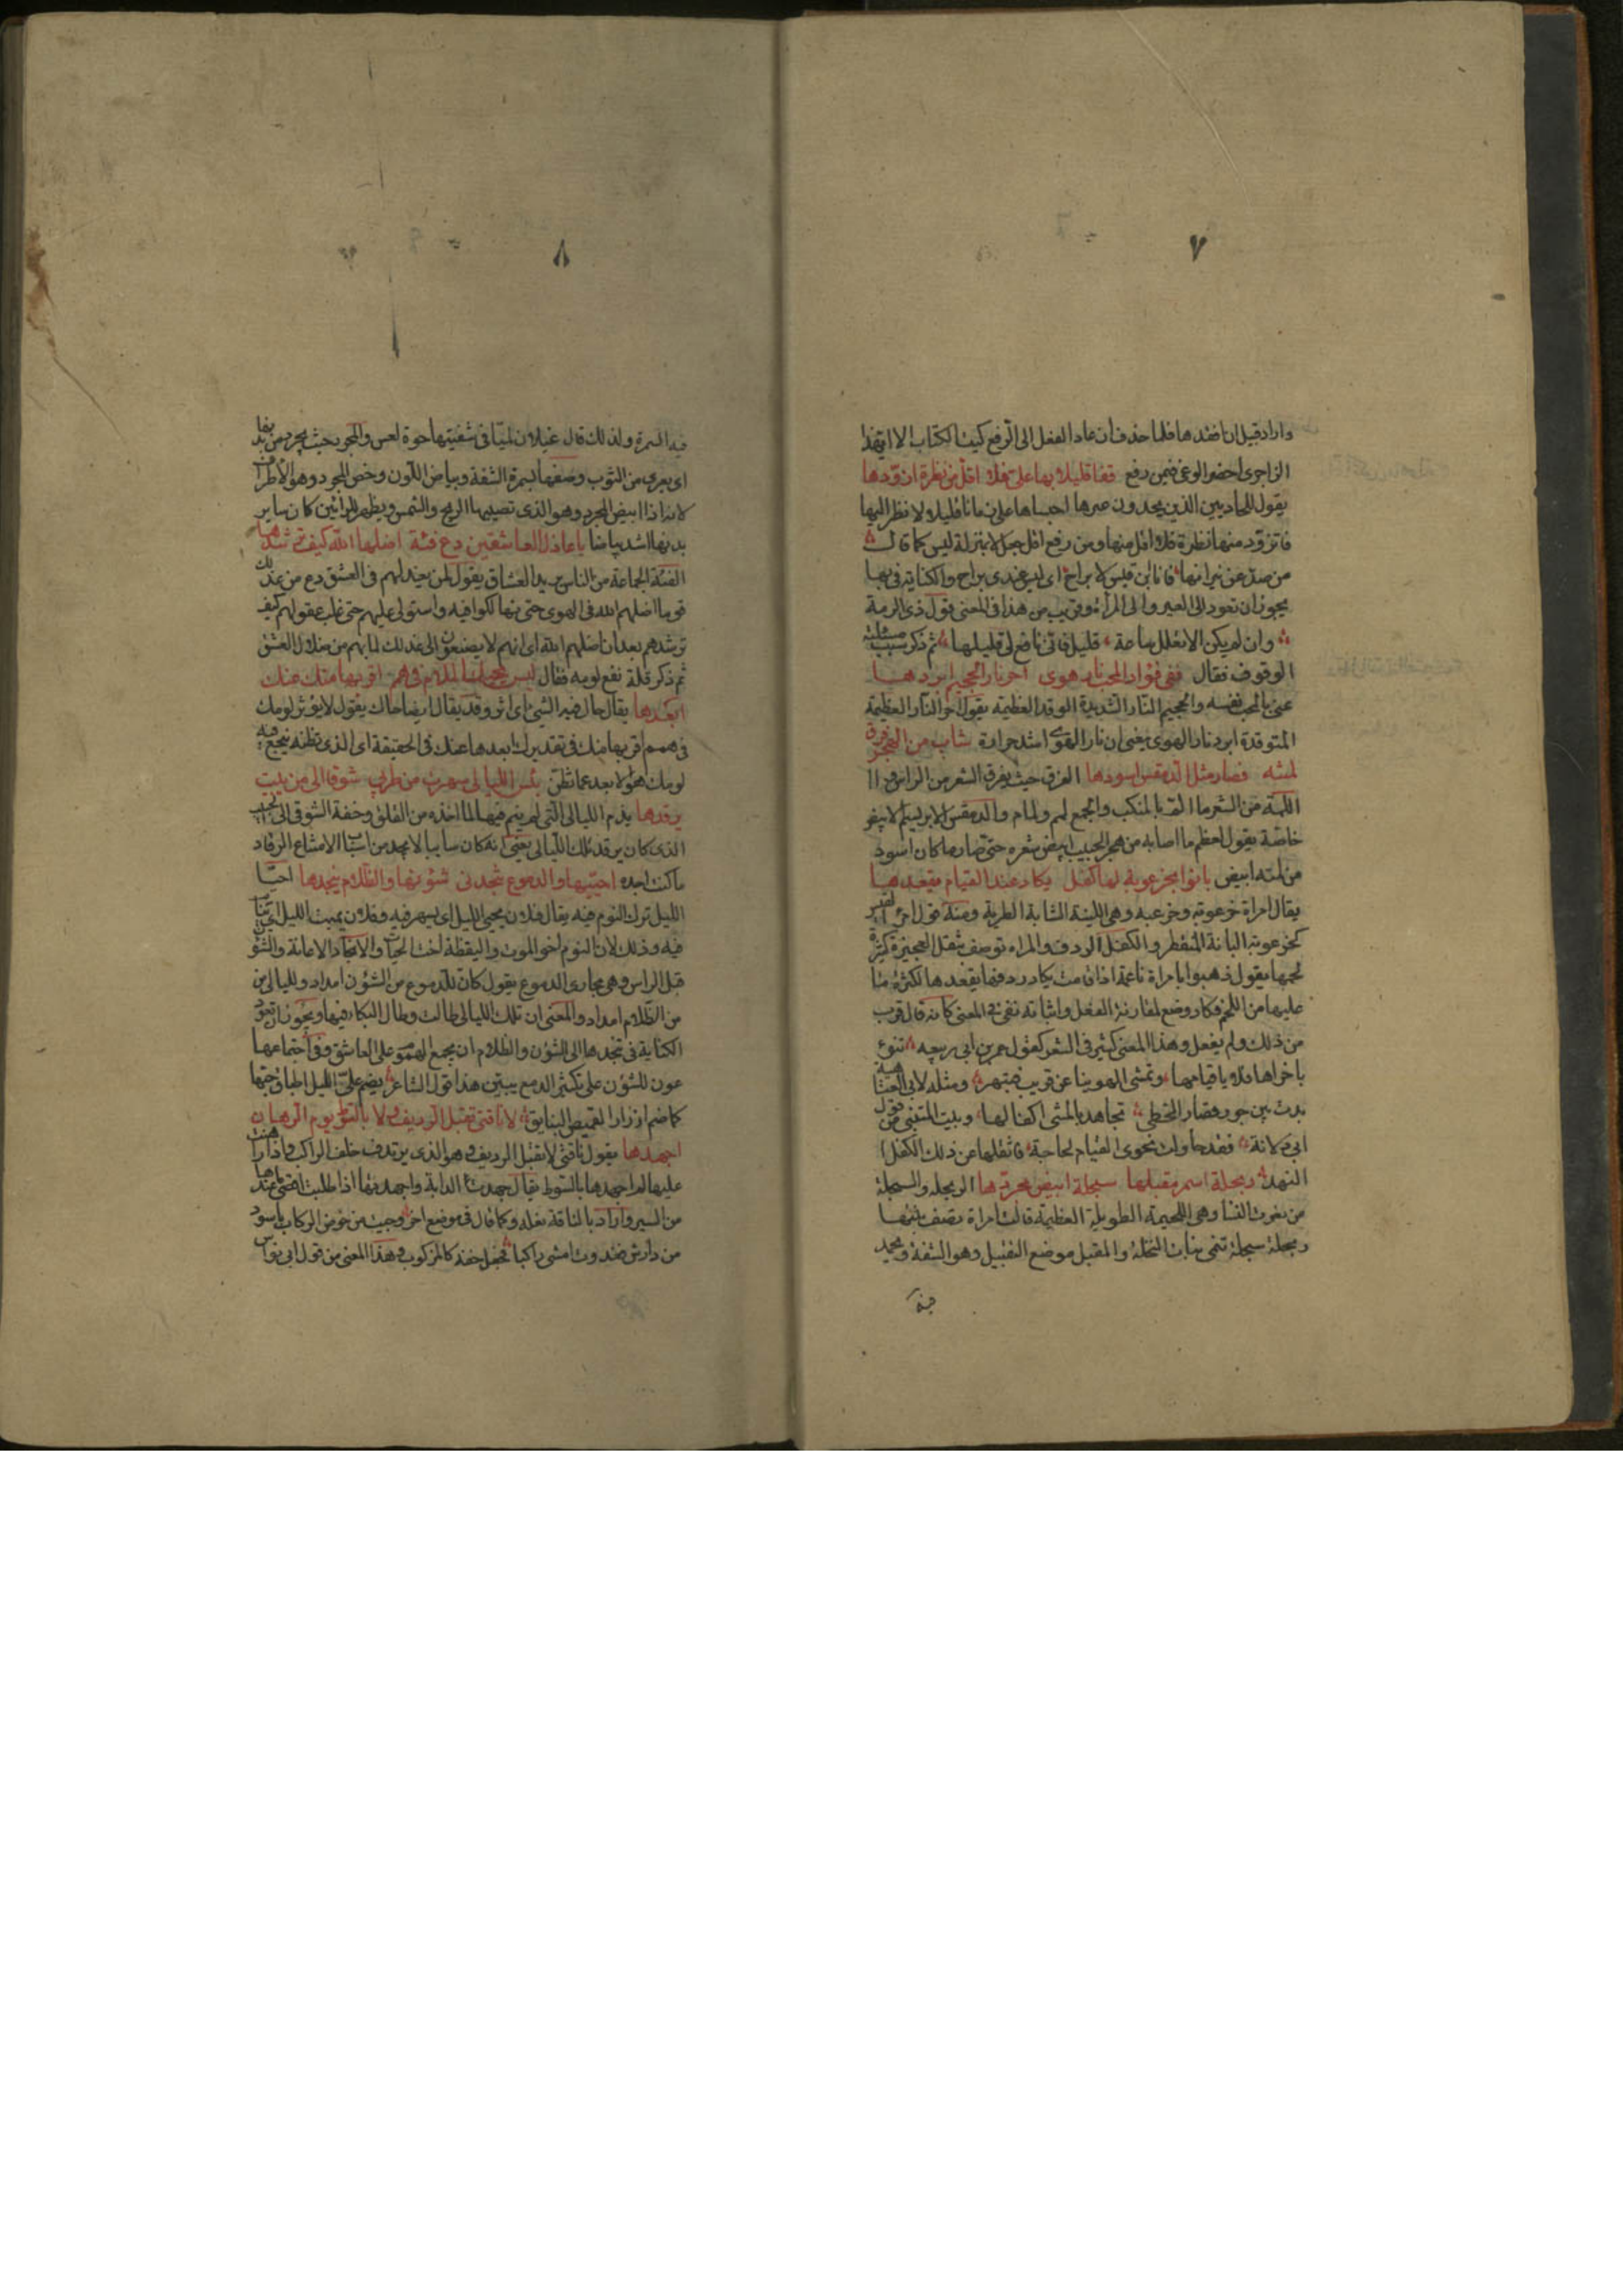 ٧
واراد قبيل ان افقدها فلما حذف ان عاد الفعل الى الرفع كبيت الكتاب الا ايهذا
الزاجرى احضر الوغى فيمن رفع قفا قليلا بها على فلا اقل من نظرة ازودها
يقول للحاديين الذين يحدوان عيرها احبساها على زمانا قليلا لانظر اليها
فاتزود منها نظرة فلا اقل منها ومن رفع اقل جعل لا بمنزلة ليس كما قال
من صد عن نيرانها فانا ابن قيس لا براح اى ليس عندى براح والكناية فى بها
يجوز ان تعود الى العير والى المرأة وقريب من هذا فى المعنى قول ذى الرمة
وان لم يكن الا تعلل ساعة قليل فانى نافع لى قليلها ثم ذكر سبب مسئلته
الوقوف فقال ففى فؤاد المحب نار هوى احر نار الجحيم ابردها
عنى بالمحب نفسه والجحيم النار الشديدة الوقد العظيمة يقول احر النار العظيمة
المتوقدة ابرد نار الهوى يعنى ان نار الهوى اشد حرارة شاب من الهجر فرق
لمته فصار مثل الدمقس اسودها الفرق حيث يفرق الشعر من الراس و
اللمة من الشعر ما الم بالمنكب والجمع لمم ولمام والدمقس الابريسم الابيض
خاصة يقول لعظم ما اصابه من هجر الحبيب ابيض شعره حتى صار ما كان اسود
من لمته ابيض بانوا بخرعوبة لها كفل يكاد عند القيام يقعدها
يقال امراة خرعوبة وخرعبة وهى اللينة الشابة الطرية ومنه قول امرئ القيس
كخرعوبة البانة المنفطر والكفل الردف والمراه توصف بثقل العجيزة وكثرة
لحمها يقول ذهبوا بامراة ناعمة اذا قامت يكاد ردفها يقعدها لكثرة ما
عليها من اللحم وكاد وضع لمقاربة الفعل واثباته نفى فى المعنى كانه قال قرب
من ذلك ولم يفعل وهذا المعنى كثير فى الشعر كقول عمر بن ابى ربيعه تنوء
باخراها فلايا قيامها وتمشى الهوينا عن قريب فتبهر ومثله لابى العتاهية
بدت بين حور قصار الخطى تجاهد بالمشى اكفالها وبيت المتنبى من قول
ابى دلامة وقد حاولت نحوى القيام لحاجة فاثقلها عن ذلك الكفل
النهد ربحلة اسمر مقبلها سبحلة ابيض مجردها الربحلة والسبحلة
من نعوت النساء وهى اللحيمة الطويلة العظيمة قالت امراة تصف بنتها
ربحلة سبحلة تنمى نبات النخلة والمقبل موضع التقبيل وهو الشفة ويحمد
فيه
٨
فيه السمرة ولذلك قال غيلان لمياء فى شفتيها حوة لعس والمجرد حيث يجرد من بدنها
اى يعرى من الثوب وصفها بسمرة الشفة وبياض اللون وخص المجرد وهو الاطراف
لانه اذا ابيض المجرد وهو الذى تصيبها الريح والشمس ويظهر للرائين كان ساير
بدنها اشد بياضا يا عاذل العاشقين دع فئة اضلها الله كيف ترشدها
الفئة الجماعة من الناس يريد العشاق يقول لمن يعذلهم فى العشق دع من عذلك
قوما اضلهم الله فى الهوى حتى تهالكوا فيه واستولى عليهم حتى غلب عقولهم كيف
ترشدهم بعد ان اضلهم الله اى انهم لا يصغون الى عذلك لما بهم من ضلال العشق
ثم ذكر قلة نفع لومه فقال ليس يحيك الملام فى همم اقربها منك عنك
ابعدها يقال حال فيه الشئ اى اثر وقد يقال ايضا احاك يقول لا يؤثر لومك
فى همم اقربها منك فى تقديرك ابعدها عنك فى الحقيقة اى الذى تظنه ينجع فيه
لومك هو الابعد عما تظن بئس الليالى سهرت من طربى شوقا الى من يبيت
يرقدها يذم الليالى التى لم ينم فيها لما اخذه من القلق وخفة الشوق الى الحبيب
الذى كان يرقد تلك الليالى يعنى انه كان ساليا لا يجد من اسباب الامتناع الرقاد
ما كنت اجده احييتها والدموع تنجدنى شؤنها والظلام ينجدها احيا
الليل ترك النوم فيه يقال فلان يحيى الليل اى يسهر فيه وفلان يميت الليل اى ينام
فيه وذلك لان النوم اخو الموت واليقظة اخت الحياة والانجاد الاعانة والشؤن
قبل الراس وهى مجارى الدموع يقول كان للدموع من الشؤن امداد ولليالى من
من الظلام امداد والمعنى ان تلك الليالى طالت وطال البكاء فيها ويجوز ان تعود
الكناية فى تنجدها الى الشؤن والظلام ان يجمع الهموم على العاشق وفى اجتماعها
عون للشؤن على تكثير الدمع يبين هذا قول الشاعر يضم على الليل اطباق حبها
كما ضم ازرار القميص البنايق لا ناقتى تقبل الرديف ولا بالسوط يوم الرهان
اجهدها يقول ناقتى لا تقبل الرديف وهو الذى يرتدف خلف الراكب واذا راهنت
عليها لم اجهدها بالسوط يقال جهدت الدابة واجهدتها اذا طلبت اقصى ما عندها
من السير واراد بالناقة نعله وكما قال فى موضع اخر وحبيت من خوص الركاب باسود
من دارش فغدوت امشى راكبا فجعل خفه كالمركوب وهذا المعنى من قول ابى نواس